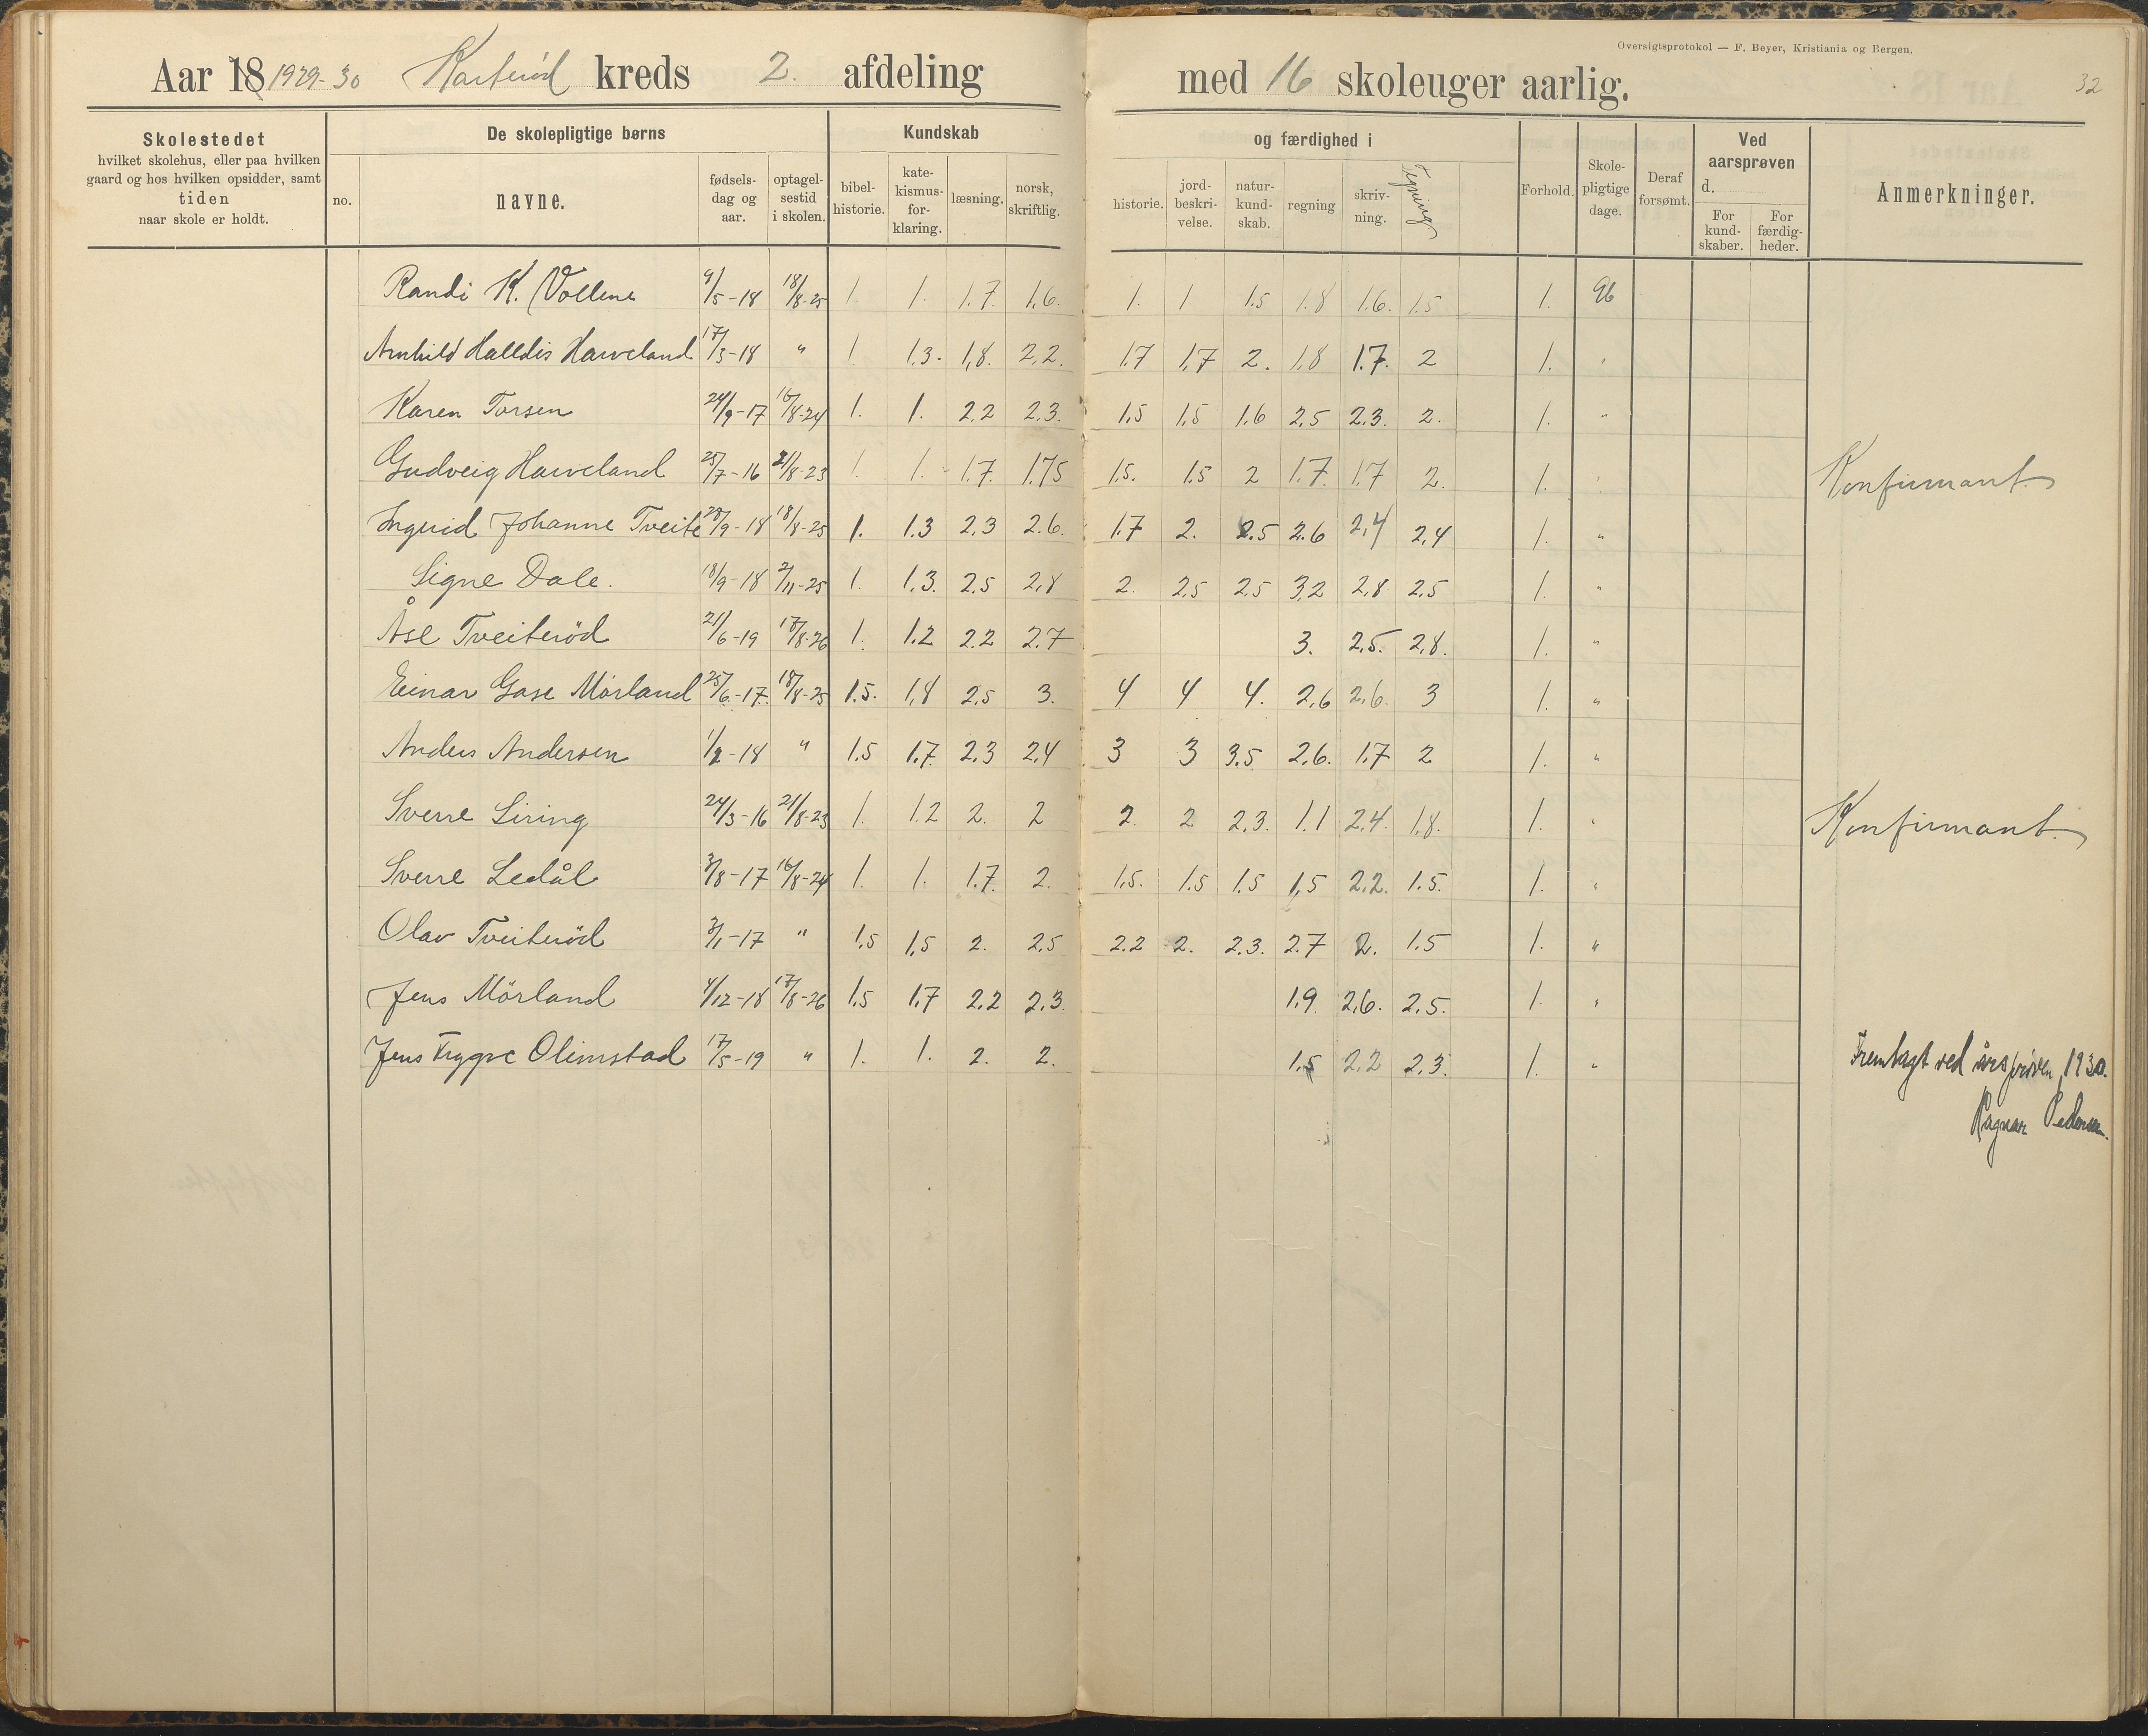 Oversigtsprotokol — F. Beyer, Kristiania og Bergen.
Aar 18 1929-30 Karterød kreds 2. afdeling med 16 skoleuger aarlig. 32
Skolestedet
hvilket skolehus, eller paa hvilken
gaard og hos hvilken opsidder, samt
tiden
naar skole er holdt.
De skolepligtige børns
no.
navne.
fødsels-
dag og
aar.
optagel-
sestid
i skolen.
Kundskab
bibel-
historie.
kate-
kismus-
for-
klaring.
læsning.
norsk,
skriftlig.
og færdighed i
historie.
jord-
beskri-
velse.
natur-
kund-
skab.
regning
skriv-
ning.
Tegning
Forhold.
Skole-
pligtige
dage.
Deraf
forsømt.
Ved
aarsprøven
d.
For
kund-
skaber.
For
færdig-
heder.
Anmerkninger.
Randi K. Vollene 9/5-18 18/8-25 1. 1. 1.7. 1.6. 1. 1. 1.5 1.8 1.6. 1.5 1. 96
Arnhild Halldis Haveland 17/3-18 " 1 1.3. 1,8. 2,2. 1.7 1,7 2. 1,8 1.7. 2 1. "
Karen Torsen 24/9-17 16/8-24 1. 1. 2.2 2.3. 1.5 1,5 1.6 2,5 2.3. 2. 1. "
Gudveig Haveland 25/7-16 21/8-23 1. 1. 1.7. 1.75 1.5. 1.5 2 1.7. 1.7 2. 1. " Konfirmant.
Ingrid Johanne Tveite 28/9-18 18/8-25 1. 1.3 2.3 2.6. 1.7 2. 2.5 2.6 2,4 2,4 1. "
Signe Dale. 18/9-18 2/11-25 1. 1.3. 2.5 2,8 2. 2.5 2.5 3.2 2,8 2,5 1. "
Åse Tveiterød 21/6-19 17/8-26 1. 1.2 2.2 2.7 3. 2.5. 2,8. 1. "
Einar Gase Mørland 25/6-17. 18/8-25 1.5. 1,8 2,5 3. 4 4 4. 2,6 2,6. 3 1. "
Anders Andersen 1/2-18 " 1.5 1.7. 2.3 2,4 3 3 3.5 2.6. 1.7 2 1. "
Sverre Liring 24/3-16 21/8-23 1. 1.2 2. 2 2. 2 2.3. 1.1 2.4. 1,8. 1. " Konfirmant.
Sverre Ledål 3/8-17 16/8-24 1. 1. 1.7. 2. 1.5. 1.5 1.5 1,5 2.2. 1.5. 1. "
Olav Tveiterød 3/1-17 " 1,5 1,5 2. 2,5 2.2 2. 2.3. 2.7 2. 1.5 1. "
Jens Mørland 4/12-18 17/8-26 1.5 1.7 2.2 2.3 1.9. 2,6. 2.5. 1. "
Jens Trygve Olimstad 17/5-19 " 1. 1. 2. 2. 1.5 2.2 2.3. 1. "
Fremlagt ved årsprøven 1930.
Ragnar Pedersen.